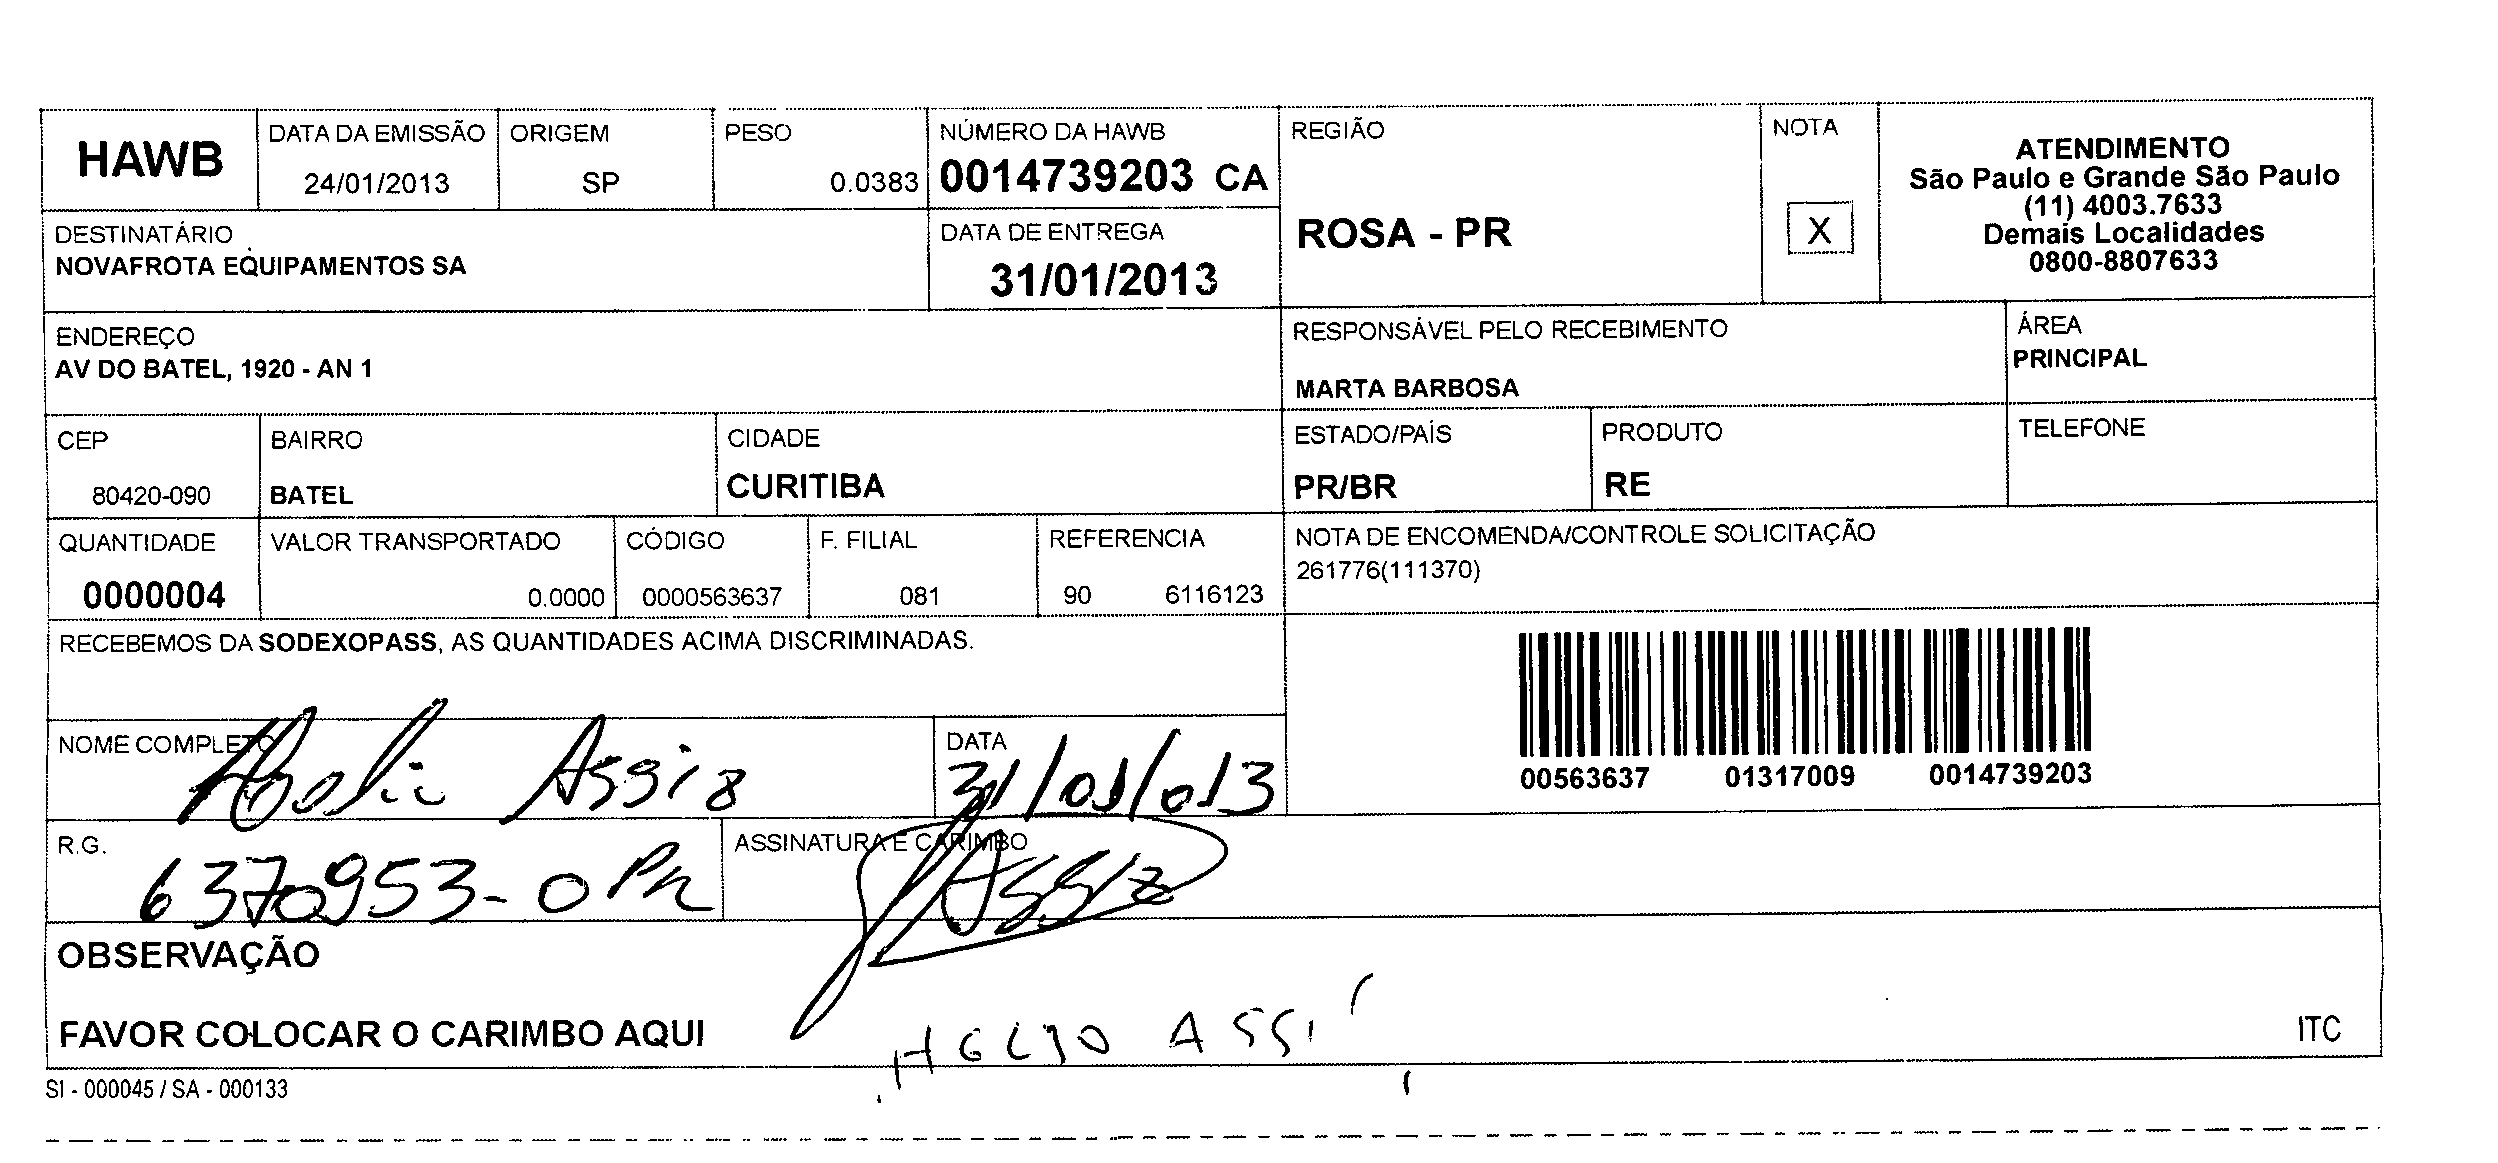 HAWB
DATA DA EMISSÃO
24/01/2013
ORIGEM
SP
PESO
0.0383
NÚMERO DA HAWB
0014739203 CA
REGIÃO
ROSA - PR
NOTA
X
ATENDIMENTO
São Paulo e Grande São Paulo
(11) 4003.7633
Demais Localidades
0800-8807633
DESTINATÁRIO
NOVAFROTA EQUIPAMENTOS SA
DATA DE ENTREGA
31/01/2013
ENDEREÇO
AV DO BATEL, 1920 - AN 1
RESPONSÁVEL PELO RECEBIMENTO
MARTA BARBOSA
ÁREA
PRINCIPAL
CEP
80420-090
BAIRRO
BATEL
CIDADE
CURITIBA
ESTADO/PAÍS
PR/BR
PRODUTO
RE
TELEFONE
QUANTIDADE
0000004
VALOR TRANSPORTADO
0.0000
CÓDIGO
0000563637
F. FILIAL
081
REFERENCIA
90 6116123
NOTA DE ENCOMENDA/CONTROLE SOLICITAÇÃO
261776(111370)
RECEBEMOS DA SODEXOPASS, AS QUANTIDADES ACIMA DISCRIMINADAS.
00563637 01317009 0014739203
NOME COMPLETO
Assis
DATA
31/01/013
R.G.
6370953-0 PR
ASSINATURA E CARIMBO
Assis
OBSERVAÇÃO
FAVOR COLOCAR O CARIMBO AQUI
ASSI
ITC
SI - 000045 / SA - 000133